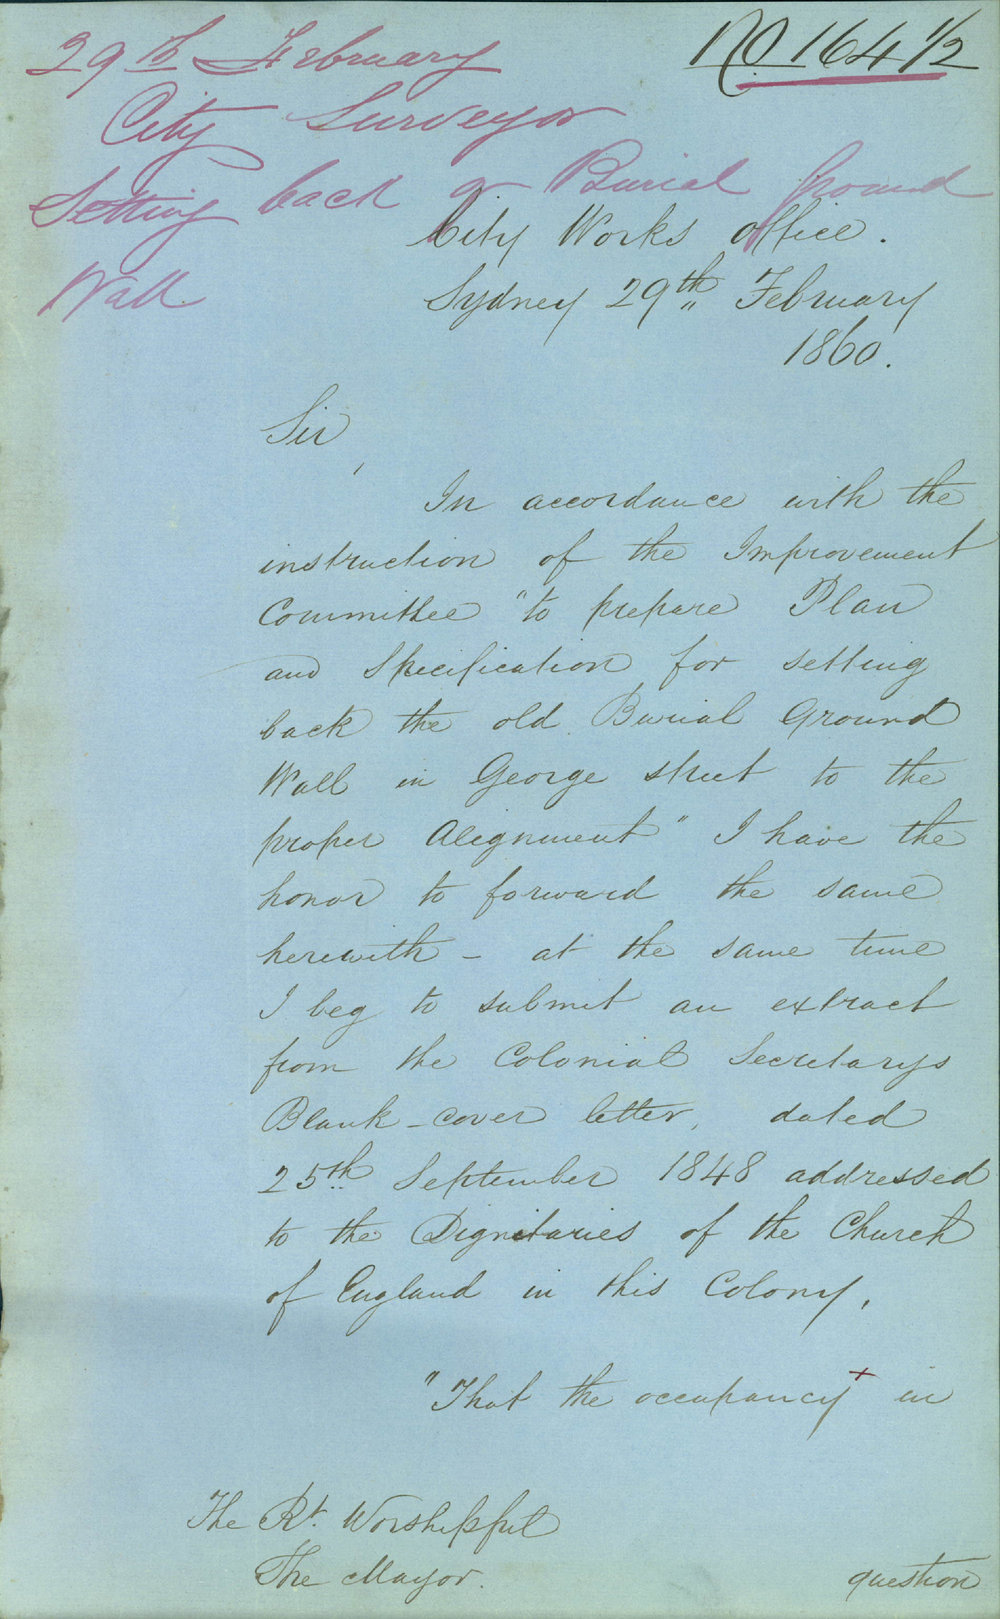 No 164 1/2
29th February
City Surveyor
Setting back a Burial ground
Wall.
City Works office.
Sydney 29th February
1860.
Sir,
In accordance with the
instruction of the Improvement
Committee "to prepare Plan
and Specification for setting
back the old Burial Ground
Wall in George street to the
proper Alignment" I have the
honor to forward the same
herewith - at the same time
I beg to submit an extract
from the Colonial Secretarys
Blank-cover letter, dated
25th September 1848 addressed
to the Dignitaries of the Church
of England in this Colony,
"That the occupancy x in
The Rt. Worshipful
The Mayor.
question